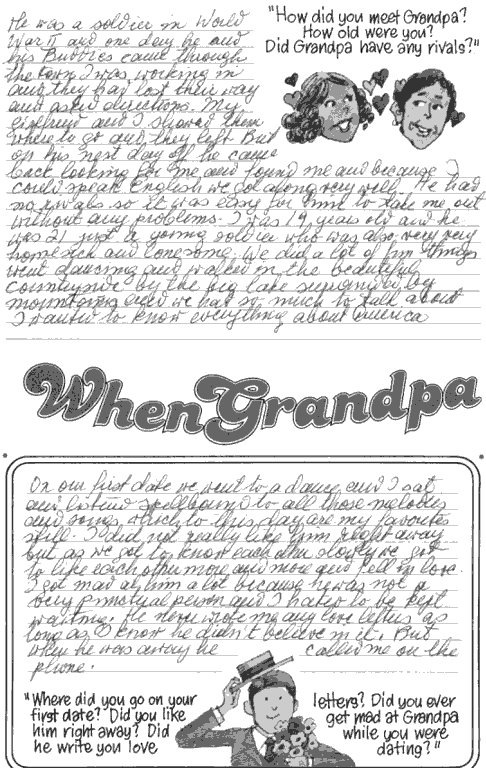 "How did you meet Grandpa?
How old were you?
Did Grandpa have any rivals?"
He was a soldier in World
War II and one day he and
his Buddies came through
the town I was working in
and they had lost their way
and asked directions. My
girlfriend and I showed them
where to go and they left But
on his next day off he came
back looking for me and found me and because I
could speak English we got along very well. He had
no rivals so it was easy for him to take me out
without any problems. I was 19 years old and he
was 21 just a young soldier who was also very very
homesick and lonesome. We did a lot of fun things
went dancing and walked in the beautiful
countryside by the big lake surrounded by
mountains and we had so much to talk about
I wanted to know everything about America
When Grandpa
On our first date we went to a dance and I sat
and listend spellbound to all those melodies
and songs which to this day are my favourites
still. I did not really like him right away
but as we got to know each other slowly we got
to like each other more and more and fell in love
I got mad at him a lot because he was not a
very punctual person and I hated to be kept
waiting. He never wrote me any love letters as
long as I know he didn't believe in it. But
when he was away he called me on the
phone.
"Where did you go on your
first date? Did you like
him right away? Did
he write you love
letters? Did you ever
get mad at Grandpa
while you were
dating?"